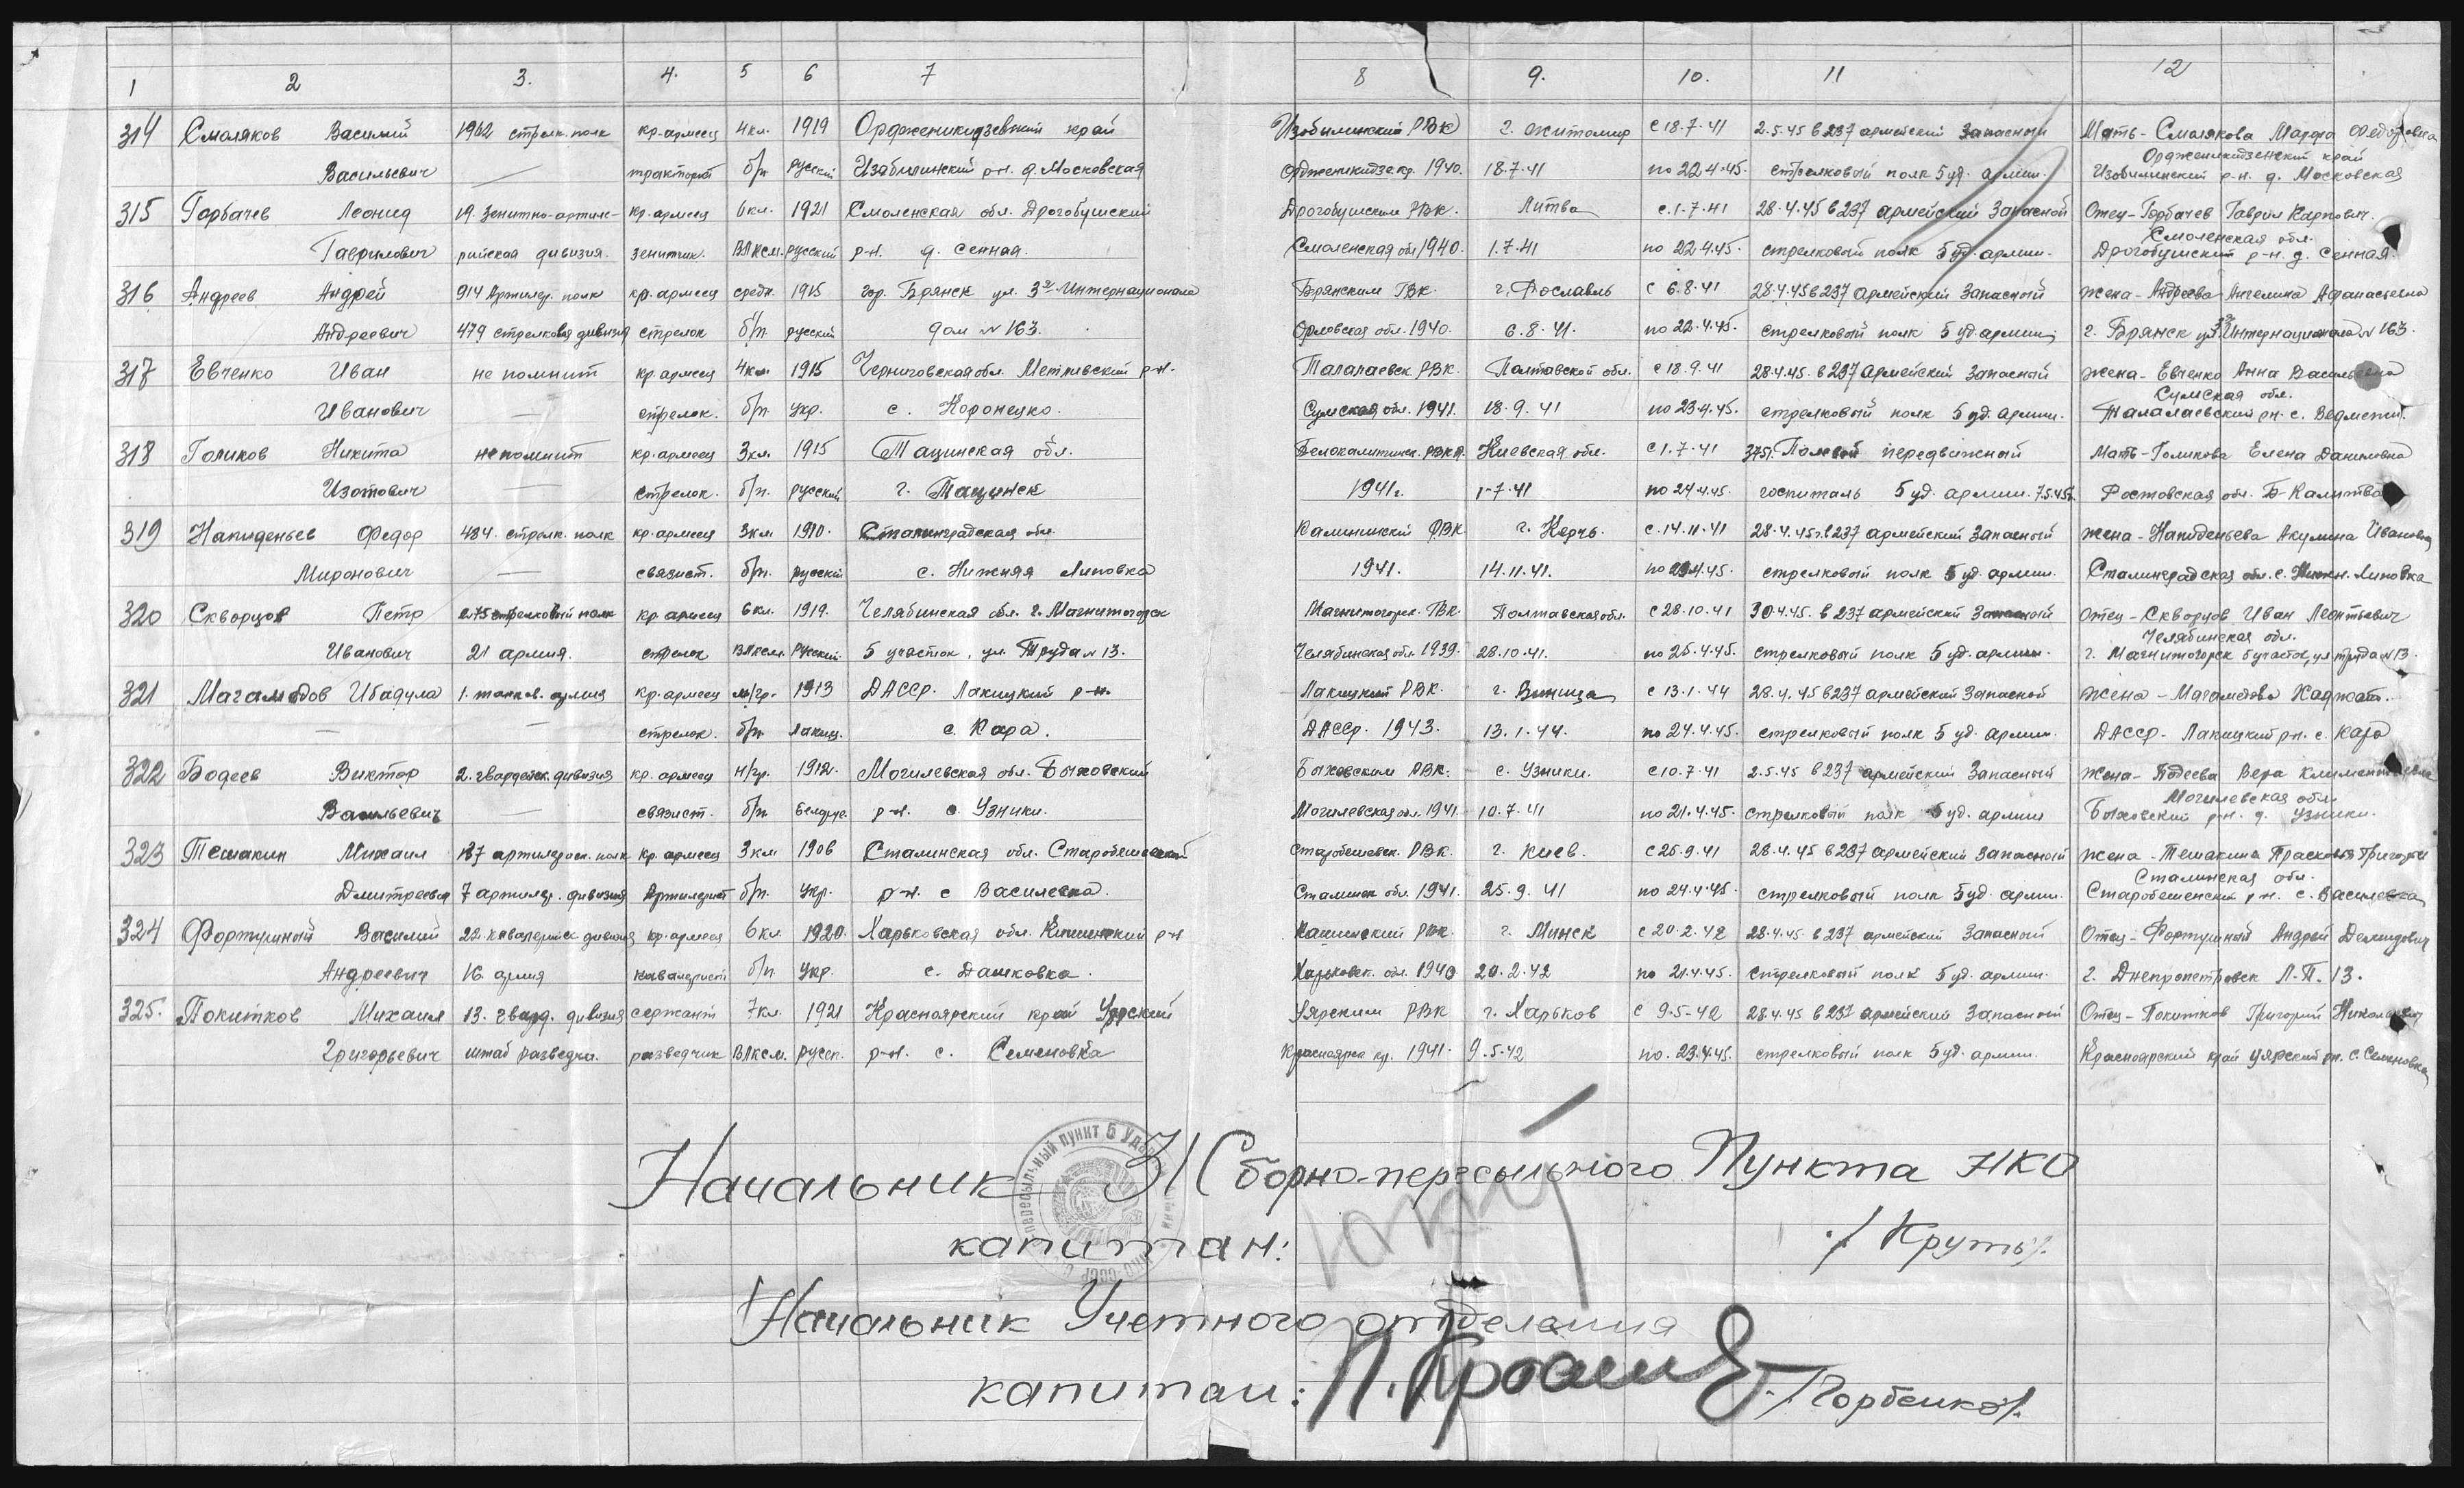 1 2 3. 4. 5 6 7 8 9. 10. 11 12
314 Смоляков Василий 1962 стрелк. полк кр-армеец 4кл. 1919 Орджоникидзевский край Изобылинский РВК г. Житомир с 18.7.41 2.5.45 в 237 армейский Запасный Мать - Смолякова Марфа Федоровна
Орджоникидзевский край
Васильевич — тракторист б/п русский Изобилинский р-н. д. Московская Орджоникидзе кр. 1940. 18.7.41 по 22.4.45. стрелковый полк 5 уд. армии. Изобилинский р-н. д. Московская
315 Горбачев Леонид 19. Зенитно-артиле- кр-армеец 6кл. 1921 Смоленская обл. Дрогобушский Дрогобушским РВК. Литва с.1.7.41 28.4.45 в 237 армейский Запасной Отец - Горбачев Гаврил Карпович.
Смоленская обл.
Гаврилович рийская дивизия. зенитчик. ВЛКСМ. русский р-н. д. Сенная. Смоленская обл 1940. 1.7.41 по 22.4.45. стрелковый полк 5 уд. армии. Дрогобушский р-н. д. Сенная.
316 Андреев Андрей 914 Артилер. полк кр-армеец средн. 1915 гор. Брянск ул. 3го Интернационала Брянским ГВК. г. Рославль с 6.8.41 28.4.45 в 237 Армейский Запасный жена - Андреева Ангелина Афанасьевна
Андреевич 479 стрелковая дивизия стрелок б/п. русский дом № 163. Орловская обл. 1940. 6.8.41. по 22.4.45. стрелковый полк 5 уд. армии г. Брянск ул. 3го Интернационала № 163.
317 Евченко Иван не помнит кр. армеец 4кл. 1915 Черниговская обл. р-н. Талалаевск. РВК. Полтавской обл. с 18.9.41 28.4.45. в 237 Армейский Запасный жена - Евченко Анна Васильевна
Сумская обл.
Иванович — стрелок. б/п. укр. с. Сумская обл. 1941. 18.9.41 по 23.4.45. стрелковый полк 5 уд. армии. Талалаевский рн. с.
318 Голиков Никита не помнит кр. армеец 3кл. 1915 Тацинская обл. Белокалитинск. РВК. Киевская обл. с 1.7.41 3751. Полевой передвижный Мать - Голикова Елена Даниловна
Изотович — стрелок. б/п. русский г. Тацинск 1941г. 1-7-41 по 24.4.45. госпиталь 5 уд. армии. 7.5.45г. Ростовская обл. Б-Калитва
319 Федор 484. стрелк. полк кр-армеец 3кл 1910. Сталинградская обл. Калининский РВК г. Керчь. с.14.11.41 28.4.45г. в 237 армейский Запасный жена - Акулина Ивановна
Миронович — связист. б/п. русский с. Нижняя Липовка 1941. 14.11.41. по 23.4.45. стрелковый полк 5 уд. армии. Сталинградская обл. с. Нижн. Липовка
320 Скворцов Петр 2.75 стрелковый полк кр. армеец 6кл. 1919. Челябинская обл. г. Магнитогорск Магнитогорск. ГВК. Полтавская обл. с 28.10.41 30.4.45. в 237 армейский Запасный Отец - Скворцов Иван Леонтьевич
Челябинская обл.
Иванович 21 армия. стрелок ВЛКСМ. Русский. 5 участок, ул. Труда № 13. Челябинская обл. 1939. 28.10.41. по 25.4.45. стрелковый полк 5 уд. армии. г. Магнитогорск 5 участок, ул. Труда № 13.
321 Магамедов Ибадула 1. танков. армия кр. армеец м/гр. 1913 ДАССР. Лакицкий р-н. Лакицкий РВК. г. Виница с 13.1.44 28.4.45 в 237 армейский Запасной жена - Магамедова
— — стрелок. б/п. лакиц. с. Кара. ДАССР. 1943. 13.1.44. по 24.4.45. стрелковый полк 5 уд. армии. ДАССР. Лакицкий рн. с. Кара
322 Бодеев Виктор 2. гвардейск. дивизия кр. армеец н/гр. 1912. Могилевская обл. Быховский Быховским РВК. с. Узники. с 10.7.41 2.5.45 в 237 армейский Запасный Жена - Вера
Могилевская обл.
Васильевич — связист. б/п. белорус. р-н. с. Узники. Могилевская обл. 1941. 10.7.41 по 21.4.45. стрелковый полк 5 уд. армии Быховский р-н. д. Узники.
323 Тешакин Михаил 187 артилерийск. полк кр. армеец 3кл 1906 Сталинская обл. Старобешевский Старобешевск. РВК. г. Киев. с 25.9.41 28.4.45 в 237 армейский Запасный Жена - Тешакина Прасковья
Сталинская обл.
Дмитреевич 7 артилер. дивизия Артилерист б/п. укр. р-н. с Василевка. Сталинск обл. 1941. 25.9.41 по 24.4.45. стрелковый полк 5 уд. армии. Старобешенский р-н. с. Василевка
324 Фортушный Василий 22. кавалерийск дивизия кр. армеец 6кл 1920. Харьковская обл. р-н РВК. г. Минск с 20.2.42 28.4.45. в 237 армейский Запасный Отец - Фортушный Андрей Демидович
Андреевич 16. армия кавалерист б/п укр. с. Дашковка. Харьковск. обл. 1940 20.2.42 по 21.4.45. стрелковый полк 5 уд. армии. г. Днепропетровск Л.П. 13.
325. Покитков Михаил 13. гвард. дивизия сержант 7кл. 1921 Красноярский край Уярский Уярским РВК г. Харьков с 9.5-42 28.4.45 в 237 армейский Запасный Отец - Покитков Григорий Николаевич
Григорьевич штаб разведки. разведчик ВЛКСМ. русск. р-н. с. Семеновка Красноярск кр. 1941. 9.5.42 по. 23.4.45. стрелковый полк 5 уд. армии. Красноярский край Уярский рн. с. Семеновка
Начальник 31 Сборно-пересыльного Пункта НКО
капитан: /Круть/.
Начальник Учетного отделения
капитан: /Горбенко/.
пересыльный пункт 5 Удар НКО СССР